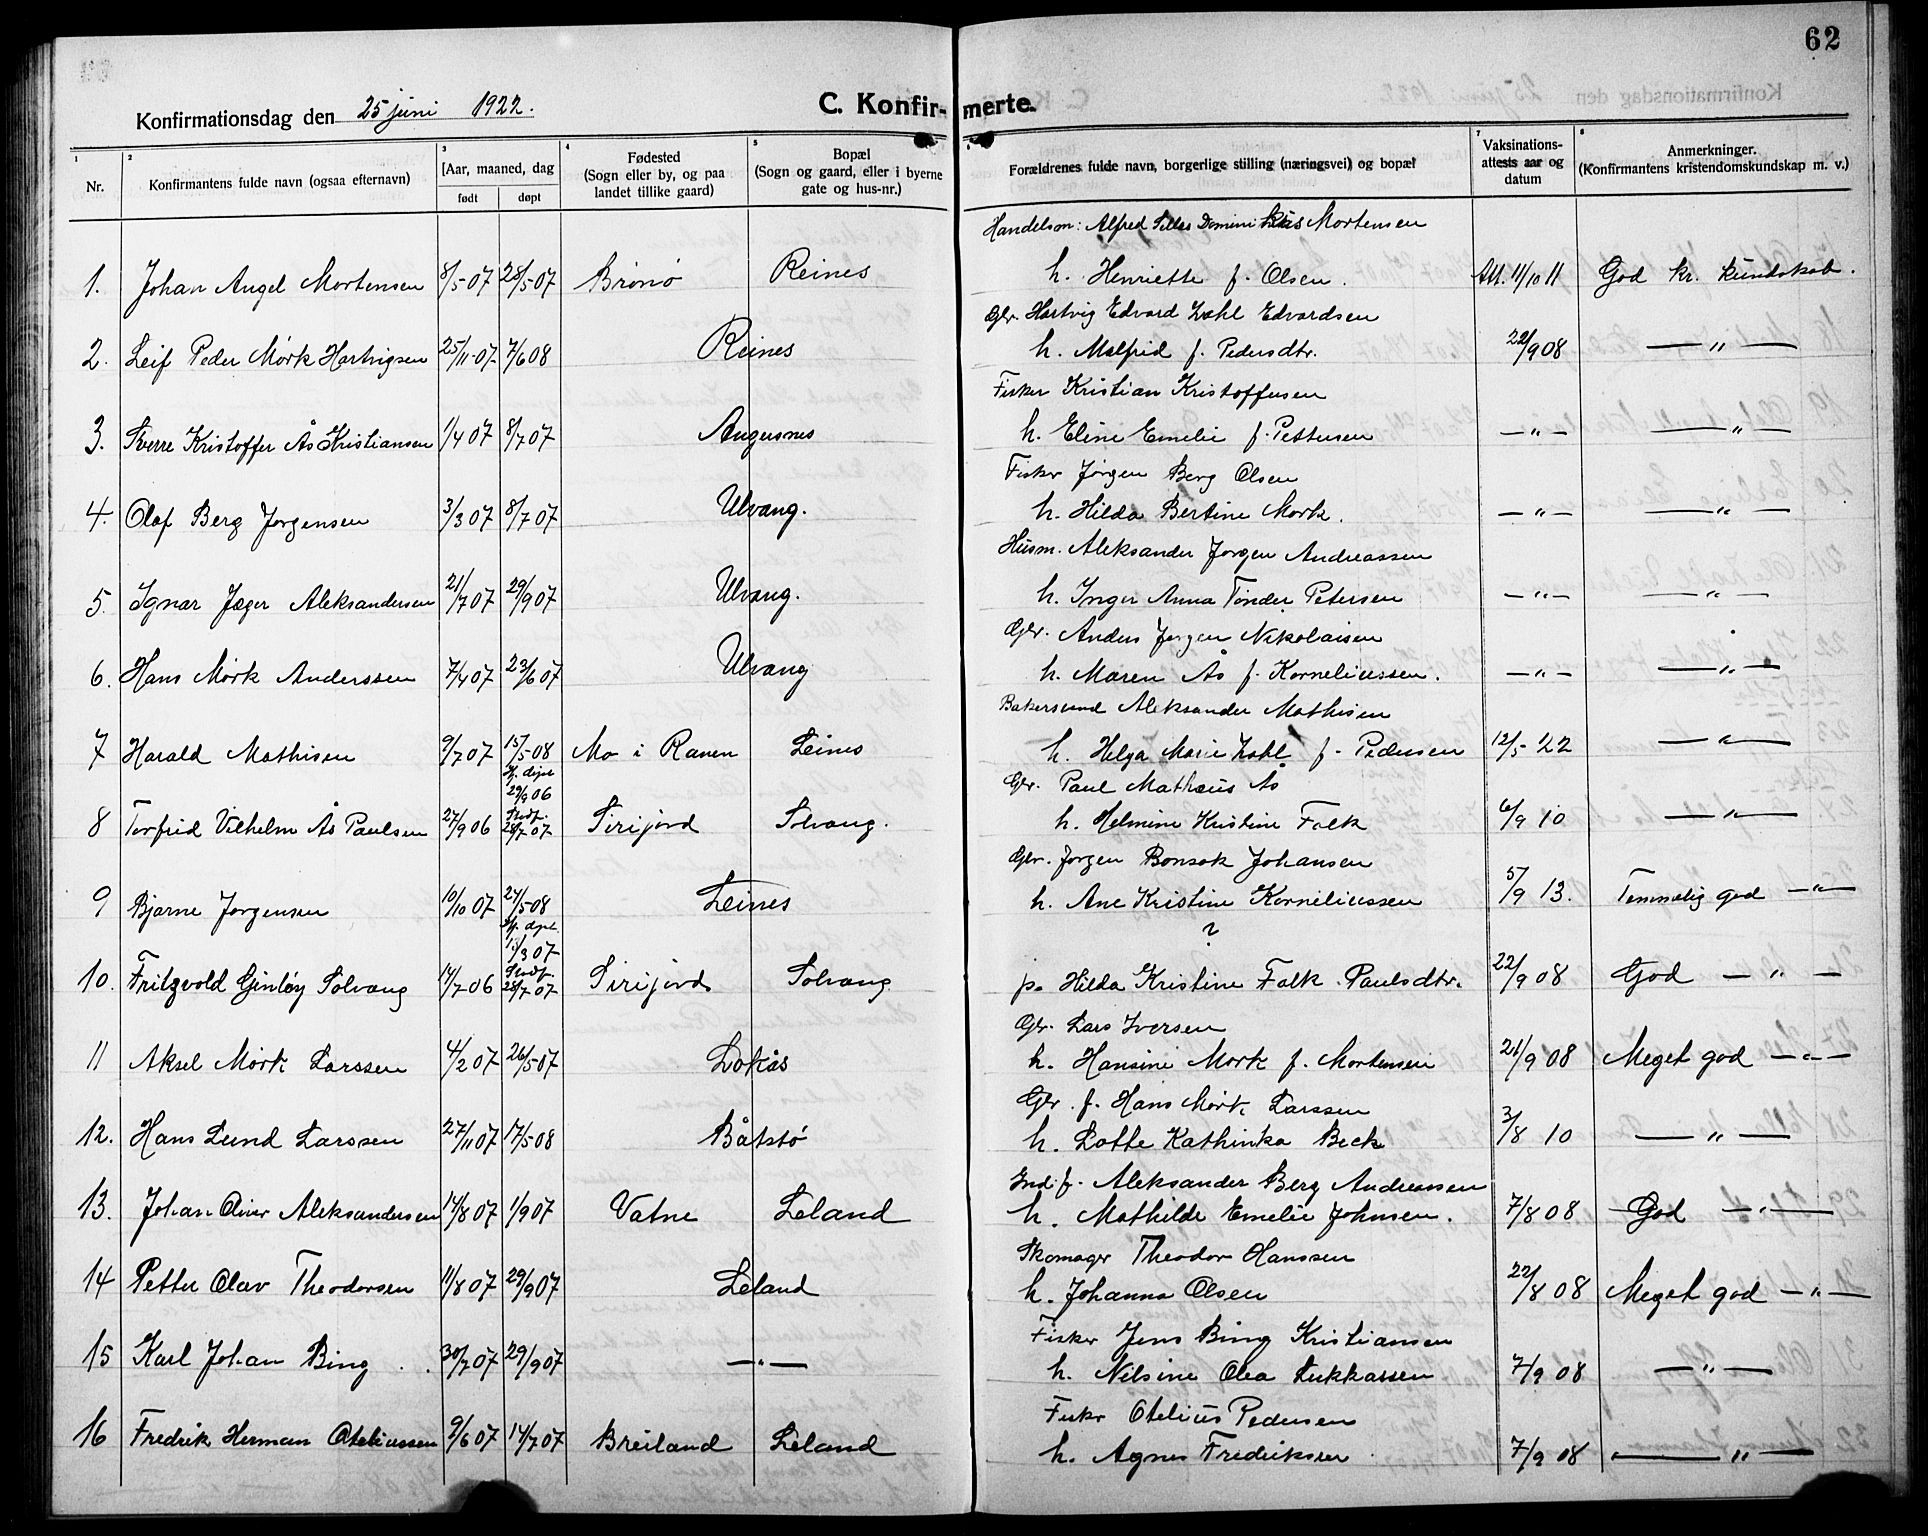 62
Konfirmationsdag den 25 juni 1922.
C. Konfirmerte.
1 Nr.
2 Konfirmantens fulde navn (ogsaa efternavn)
3 Aar, maaned, dag født døpt
4 Fødested (Sogn eller by, og paa landet tillike gaard)
5 Bopæl (Sogn og gaard, eller i byerne gate og hus-nr.)
Forældrenes fulde navn, borgerlige stilling (næringsvei) og bopæl
7 Vaksinations-attests aar og datum
8 Anmerkninger. (Konfirmantens kristendomskundskap m. v.)
Handelsm: Alfred Dominikus Mortensen
1. Johan Angel Mortensen 8/5-07 28/5-07 Brönö Reines h. Henriette f. Olsen. Att. 11/10 11 God kr. kundskab.
Gbr. Hartvig Edvard Zahl Edvardsen
2. Leif Peder Mørk Hartvigsen 25/11-07 7/6 08 Reines h. Malfrid f. Pedersdtr. 22/9 08 — " —
Fisker Kristian Kristoffersen
3. Sverre Kristoffer Ås Kristiansen 1/4 07 8/7 07 Angersnes h. Eline Emelie f. Pettersen — " — — " —
Fisker Jörgen Berg Olsen
4. Olaf Berg Jørgensen 3/3 07 8/7 07 Ulvang. h. Hilda Bertine Mørk. — " — — " —
Husm. Aleksander Jørgen Andreassen
5. Ignar Jæger Aleksandersen 21/7 07 29/9 07 Ulvang. h. Inger Anna Tönder Petersen — " — — " —
Gbr. Anders Jørgen Nikolaisen
6. Hans Mørk Anderssen 7/4 07 23/6 07 Ulvang h. Maren Ås f. Korneliussen. — " — — " —
Bakersvend Aleksander Mathisen
7 Harald Mathisen 9/7 07 15/5-08 Mo i Ranen Leines h. Helga Marie Zahl f. Pedersen 12/5-22 — " —
Hj. døpt 29/9 06
Gbr. Paul Mathæus Ås
8 Torfrid Vilhelm Ås Paulsen 27/9 06 Stadf. 28/7 07 Sirijord Solvang. h. Helmine Kristine Falk 6/9 10 — " —
Gbr. Jørgen Bonsak Johansen
9 Bjarne Jørgensen 10/10 07 24/5-08 Leines h. Ane Kristine Korneliussen 5/9 13. Temmelig god — " —
Hj. døpt 3 07 ?
10. Fritzvold Ginløy Solvang 14/7 06 Stadf. 28/7 07 Sirijord Solvang p. Hilda Kristine Falk Paulsdtr. 22/9 08 God — " —
Gbr. Lars Iversen
11 Aksel Mørk Larssen 4/2 07 26/5 07 Løkås h. Hansine Mørk f. Mortensen 21/9 08 Meget god — " —
Gbr. f. Hans Mørk Larssen
12. Hans Lund Larssen 27/11 07 17/5-08 Båtstö h. Lotte Kathinka Beck 3/8 10 — " —
Ind. f. Aleksander Berg Andreassen
13. Johan Oliver Aleksandersen 14/8 07 1/9 07 Vatne Leland h. Mathilde Emelie Johnsen. 7/8 08 God — " —
Skomager Theodor Hanssen
14 Petter Olav Theodorsen 11/8 07 29/9 07 Leland h. Johanna Olsen 22/8 08 Meget god — " —
Fisker Jens Bing Kristiansen
15 Karl Johan Bing 30/7 07 29/9 07 — " — h. Nilsine Olea Lukkassen 7/9 08 — " —
Fisker Oteliüs Pedersen
16 Fredrik Herman Oteliussen 9/6 07 14/7 07 Breiland Leland h. Agnes Fredriksen 7/9 08 — " —